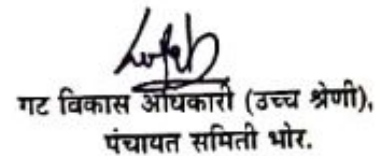 गट विकास अधिकारी (उच्च श्रेणी),
पंचायत समिती भोर.